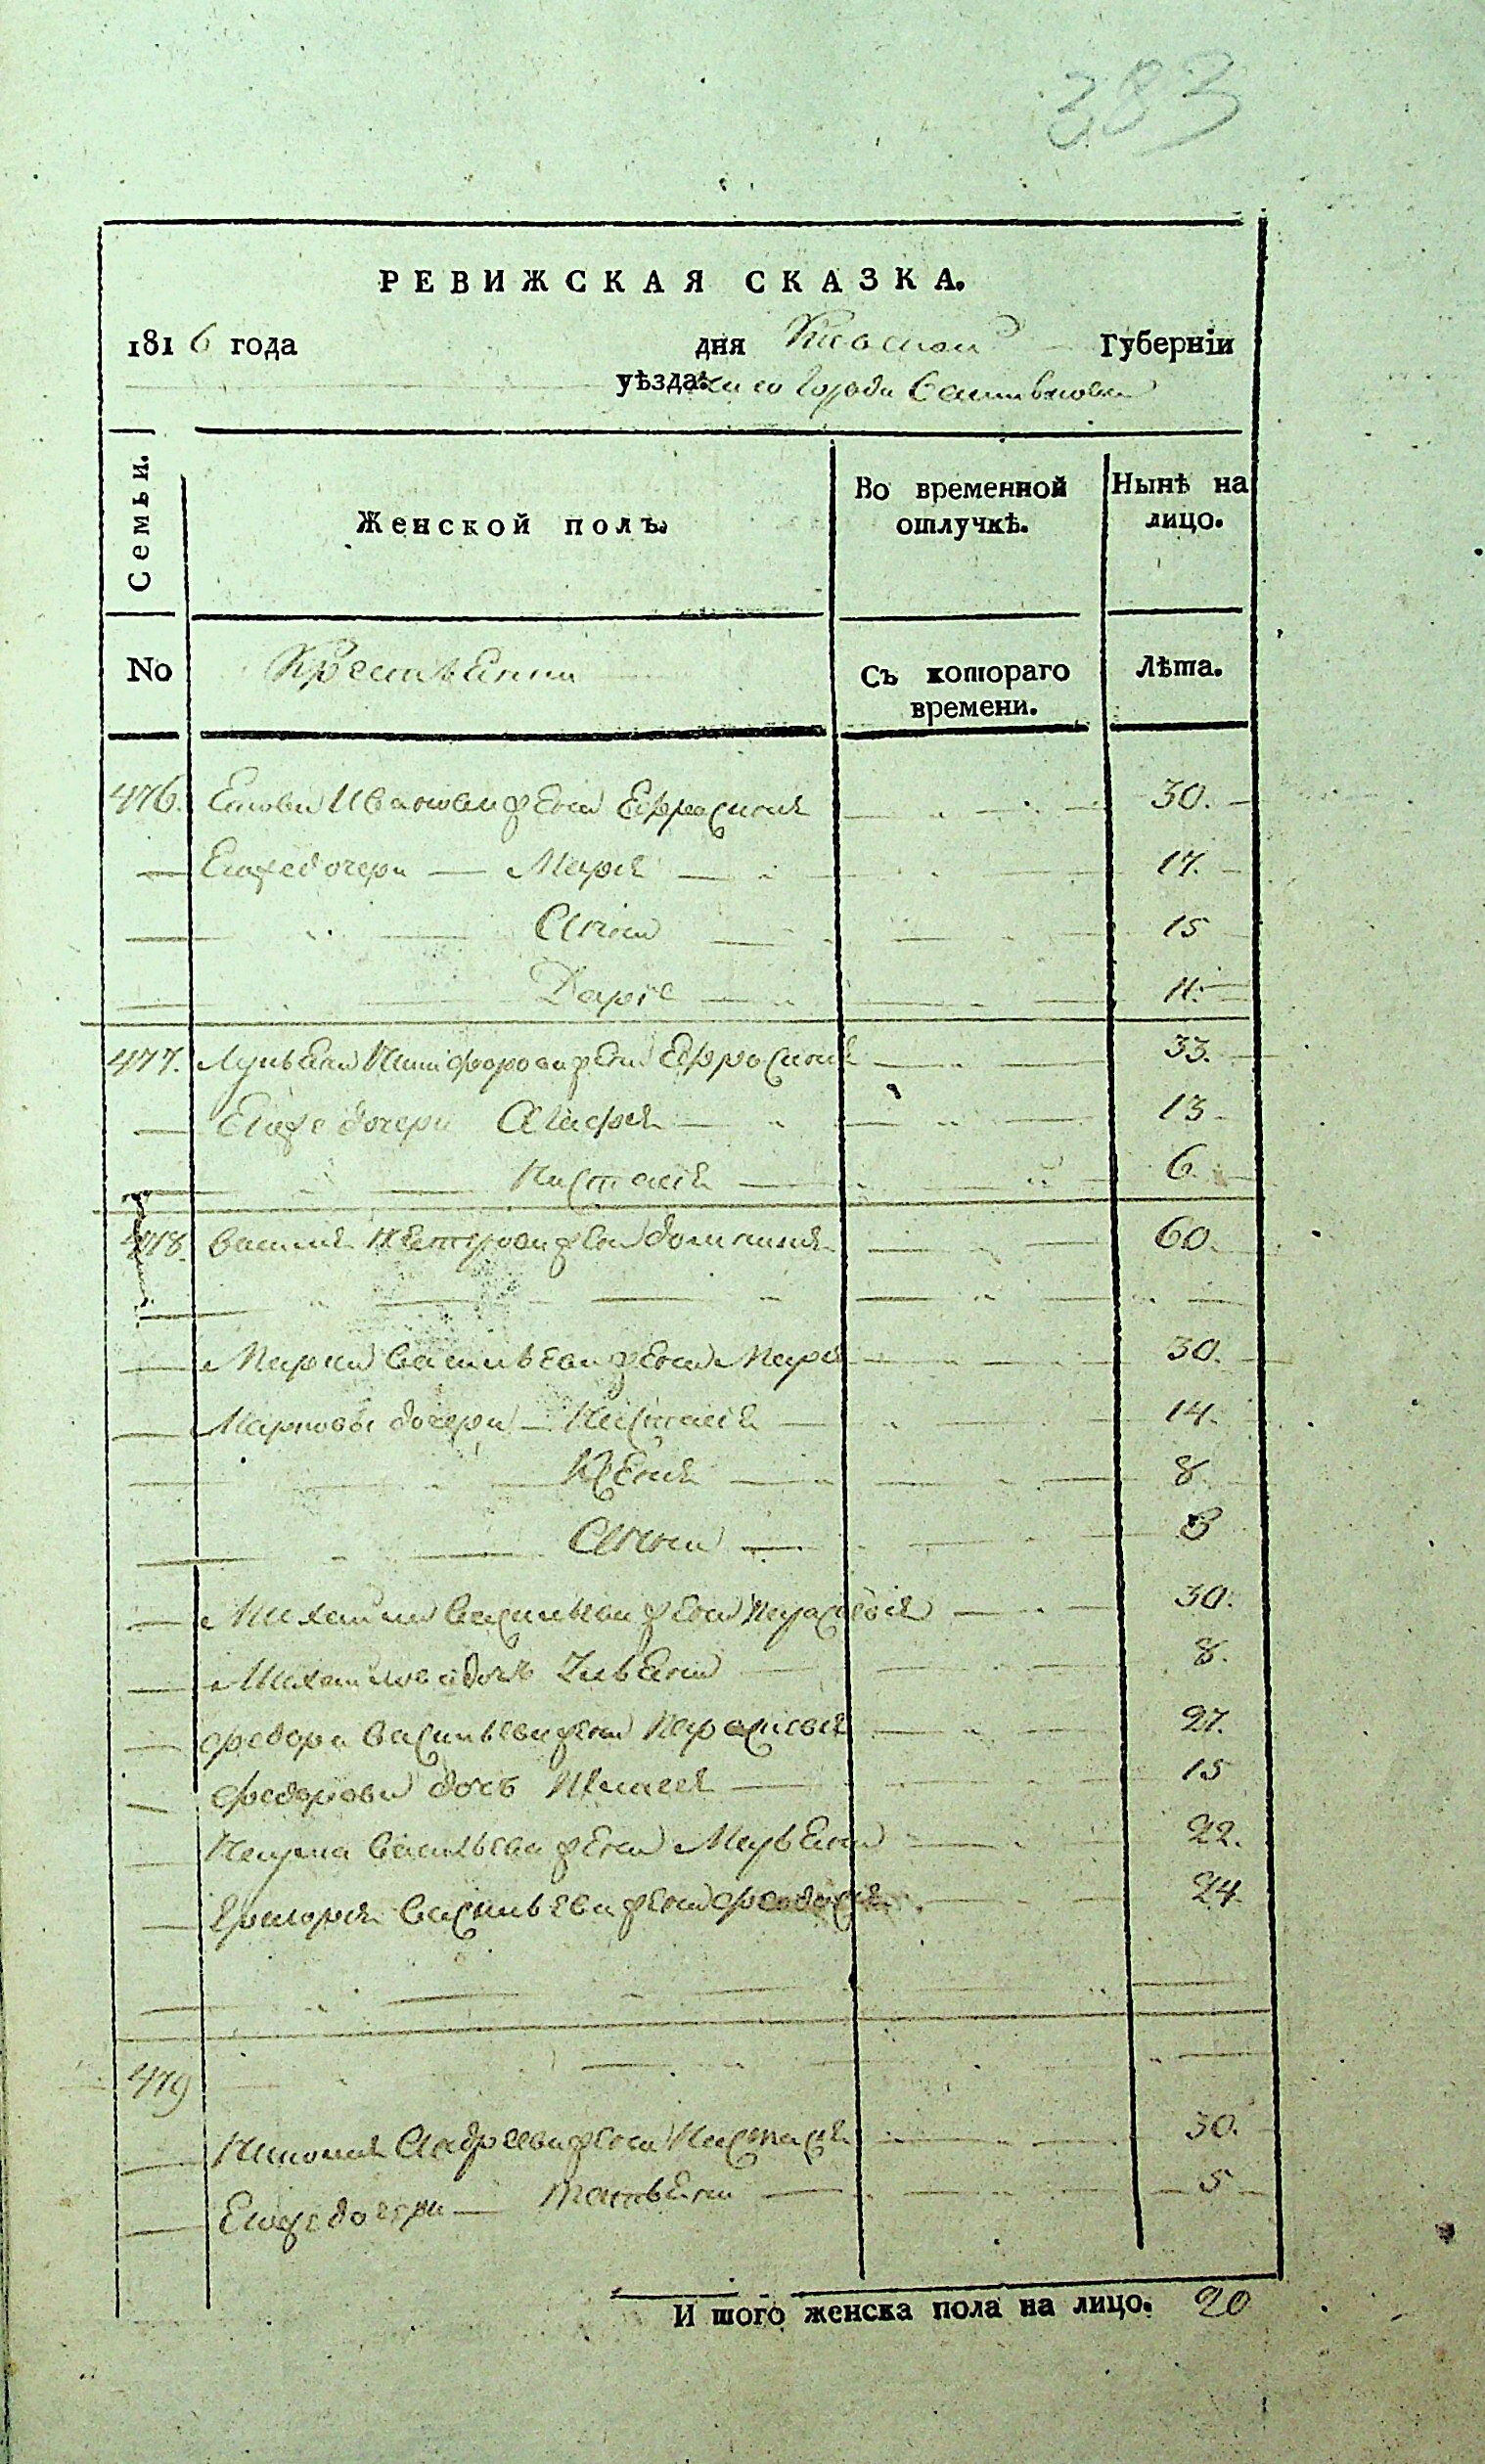 383
РЕВИЖСКАЯ СКАЗКА.
1816 года дня Киевской Губерніи
уѣзда:
Семьи.
Женской полъ.
Во временной отлучкѣ.
Нынѣ на лицо.
No
Съ котораго времени.
Лѣта.
476. Иванова жена Ефросиния 30.
Егожъ дочери Марія 17.
Анна 15
Дарія 11.
477. Никифорова жена Ефросиния 33.
Егоже дочери Агафия 13
Настасія 6
478. Василия Петрова жена Домникия 60.
Марка Васильева жена Маря 30.
Марковы дочери Настасія 14.
Ксения 8
Анна 3
Михайла Васильева жена Параскевія 30.
Михайлова дочь Ульяна 8.
Федора Васильева жена Параскевия 27.
Федорова дочь 15
Наума Васильева жена Марьяна 22.
Григория Васильева жена Феодосия 24.
479
Андреева жена Настасия 30.
Егоже дочери Татьяна 5
Итого женска пола на лицо. 20